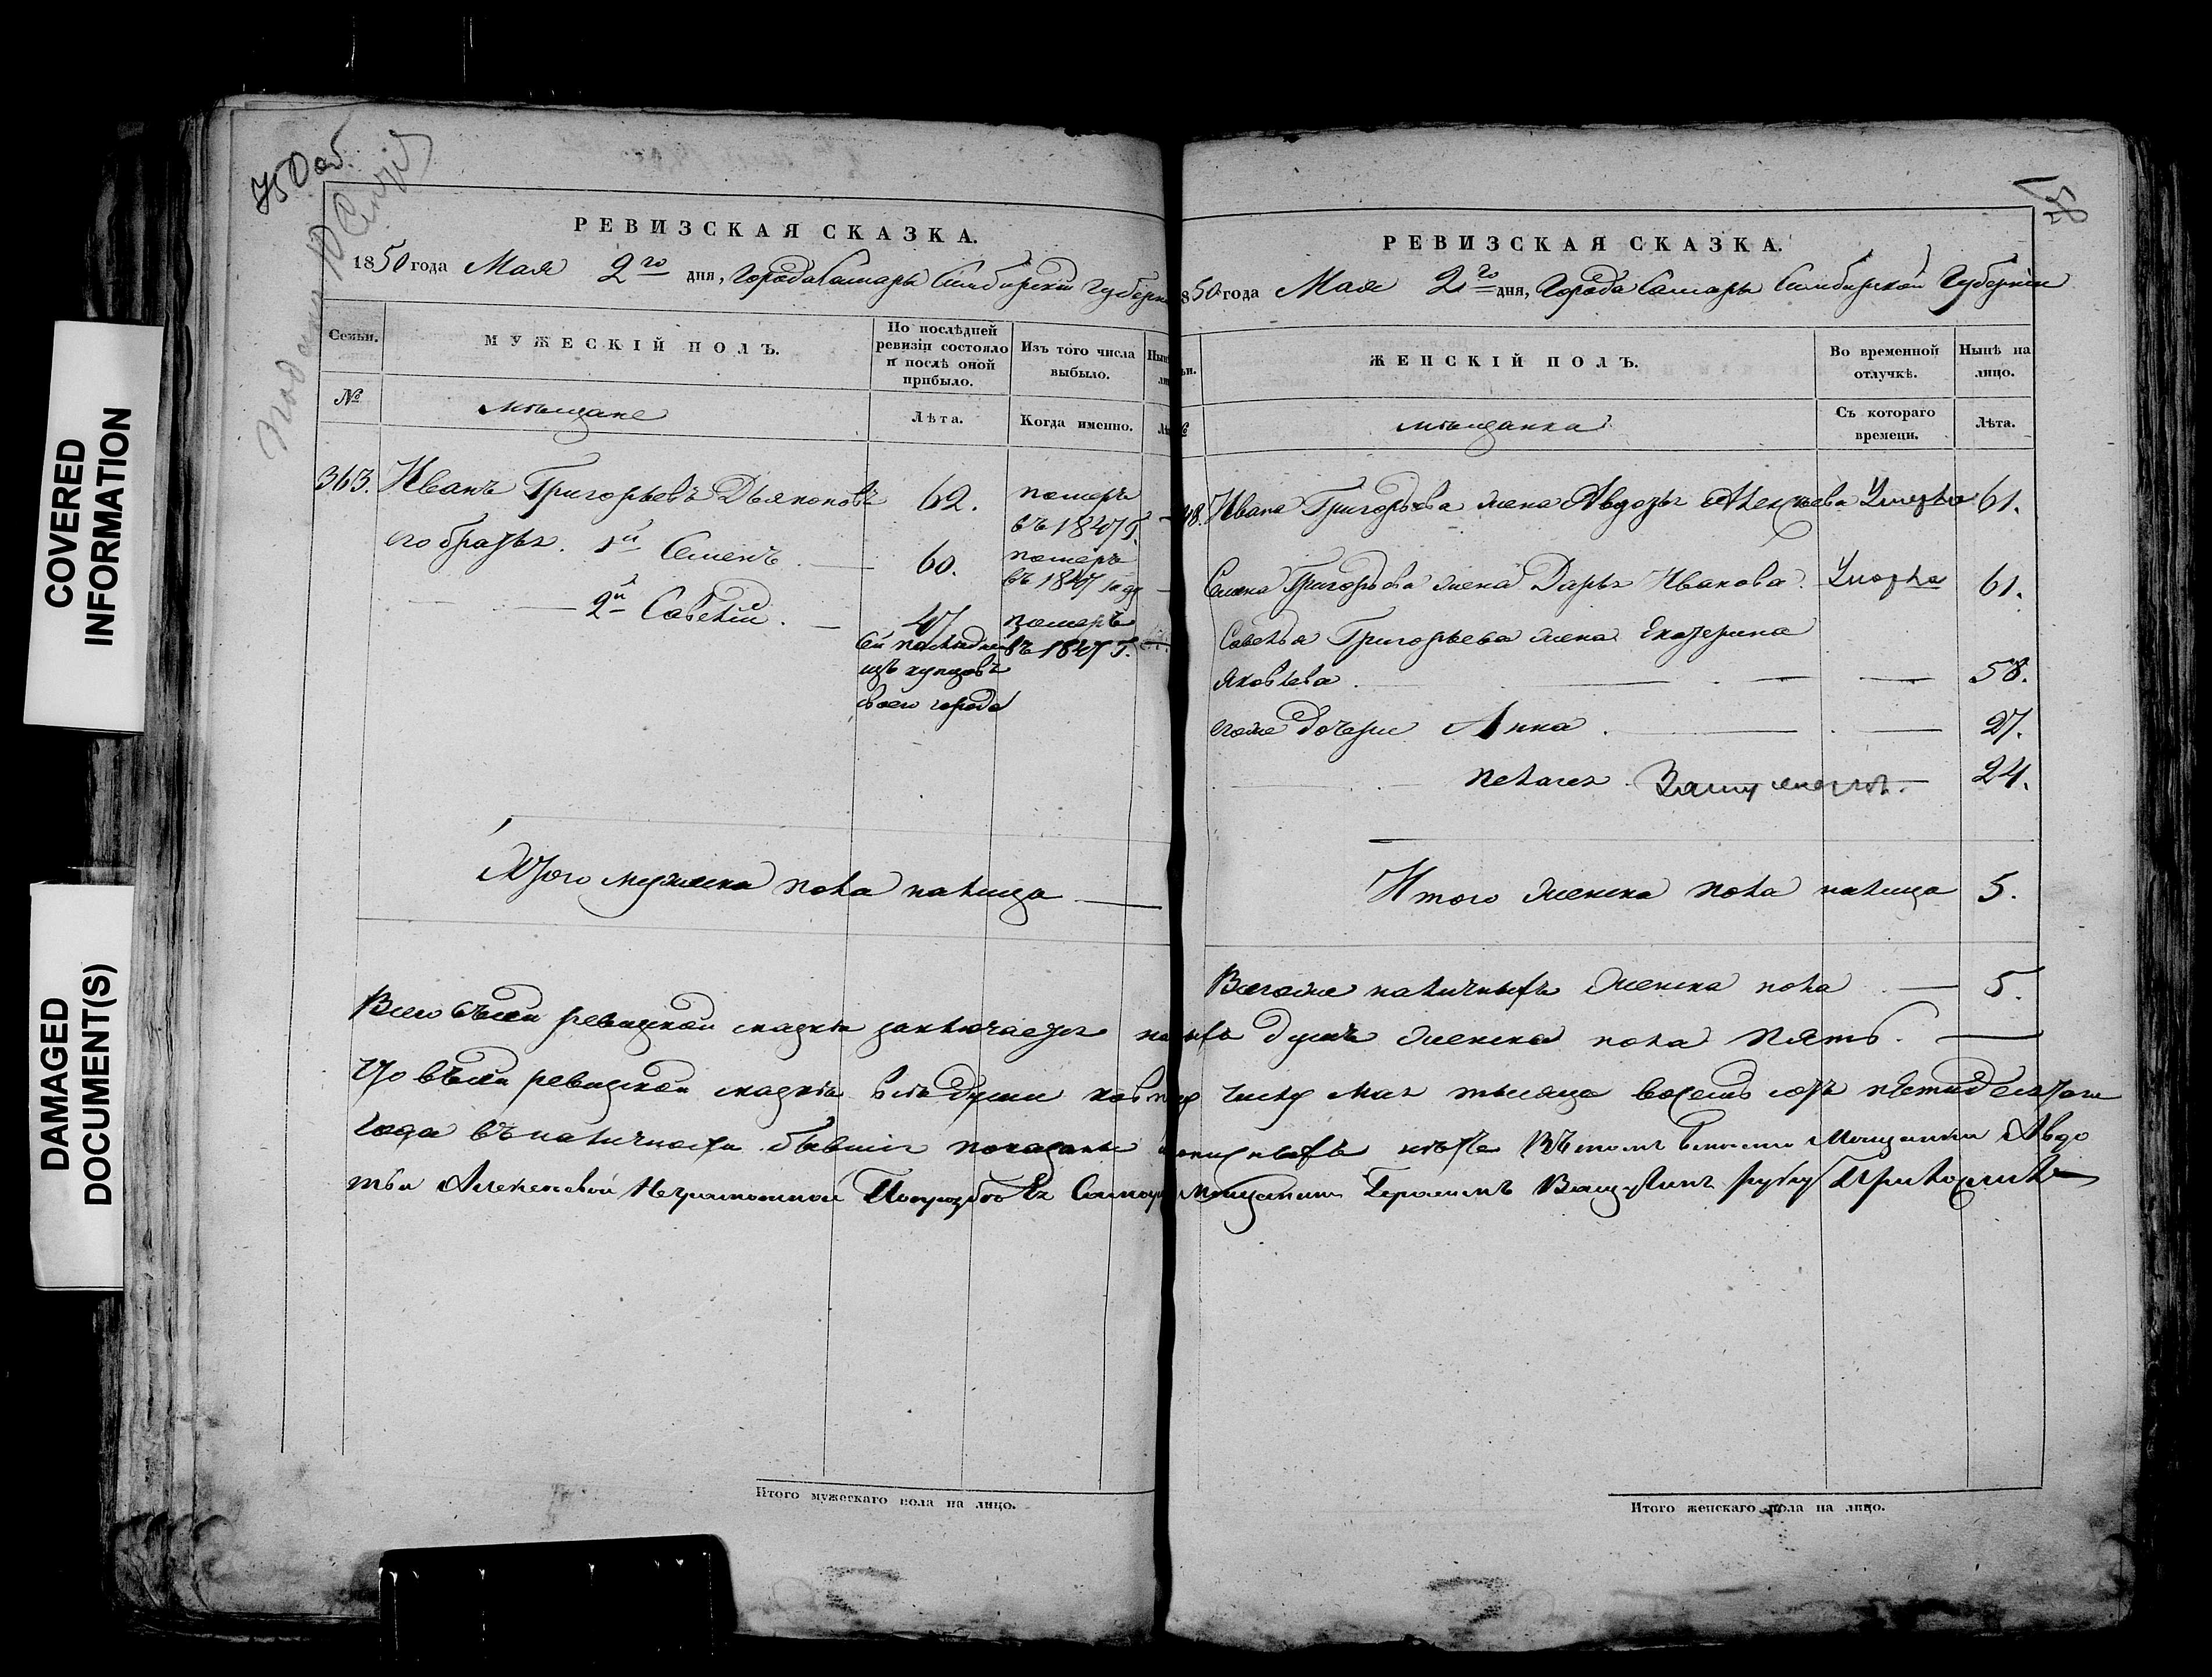 COVERED
INFORMATION
DAMAGED
DOCUMENT(S)
75 Доб.
Подан 10 Сказ
РЕВИЗСКАЯ СКАЗКА.
1850 года Мая 2го дня, Города Самары Симбирской Губерн
Семьи.
МУЖЕСКІЙ ПОЛЪ.
По послѣдней ревизіи состояло и послѣ оной прибыло.
Изъ того числа выбыло.
№
мѣщане
Лѣта.
Когда именно.
363. Иванъ Григорьевъ Дьяконовъ 62. померъ въ 1847 г.
его братья. 1й Семенъ 60. померъ въ 1847 году
2й Савелій 47 померъ въ 1847 г.
сей последней
изъ купцовъ
своего города
Итого мужеска пола налица
Итого мужескаго пола на лицо.
РЕВИЗСКАЯ СКАЗКА.
850 года Мая 2го дня, Города Самары Симбирской Губерніи
ЖЕНСКІЙ ПОЛЪ.
Во временной отлучкѣ.
Нынѣ на лицо.
мѣщанка
Съ котораго времени.
Лѣта.
Ивана Григорьева жена Авдотья Алексѣева Умерла 61.
Семена Григорьева жена Дарья Иванова. Умерла 61.
Савелья Григорьева жена Екатерина
Яковлева 58.
егоже дочери Анна 27.
Пелагея Замужемъ. 24.
Итого женска пола налица 5.
Всегоже наличныхъ женска пола 5.
Всего въсей ревизской сказкѣ заключается на ныхъ душъ женска пола пять.
Что въсей ревизской сказкѣ всѣ души ко числу мая мѣсяца восемь сотъ пятидесятаго
года въналичности бывшія показаны и пропущенныхъ нѣтъ Въ томъ вместо Мещанки Авдо
тьи Алексеевой Неграмотной Попрозбѣ Ея Самар Мещанинъ Герасимъ руку Приложилъ
Итого женскаго пола на лицо.